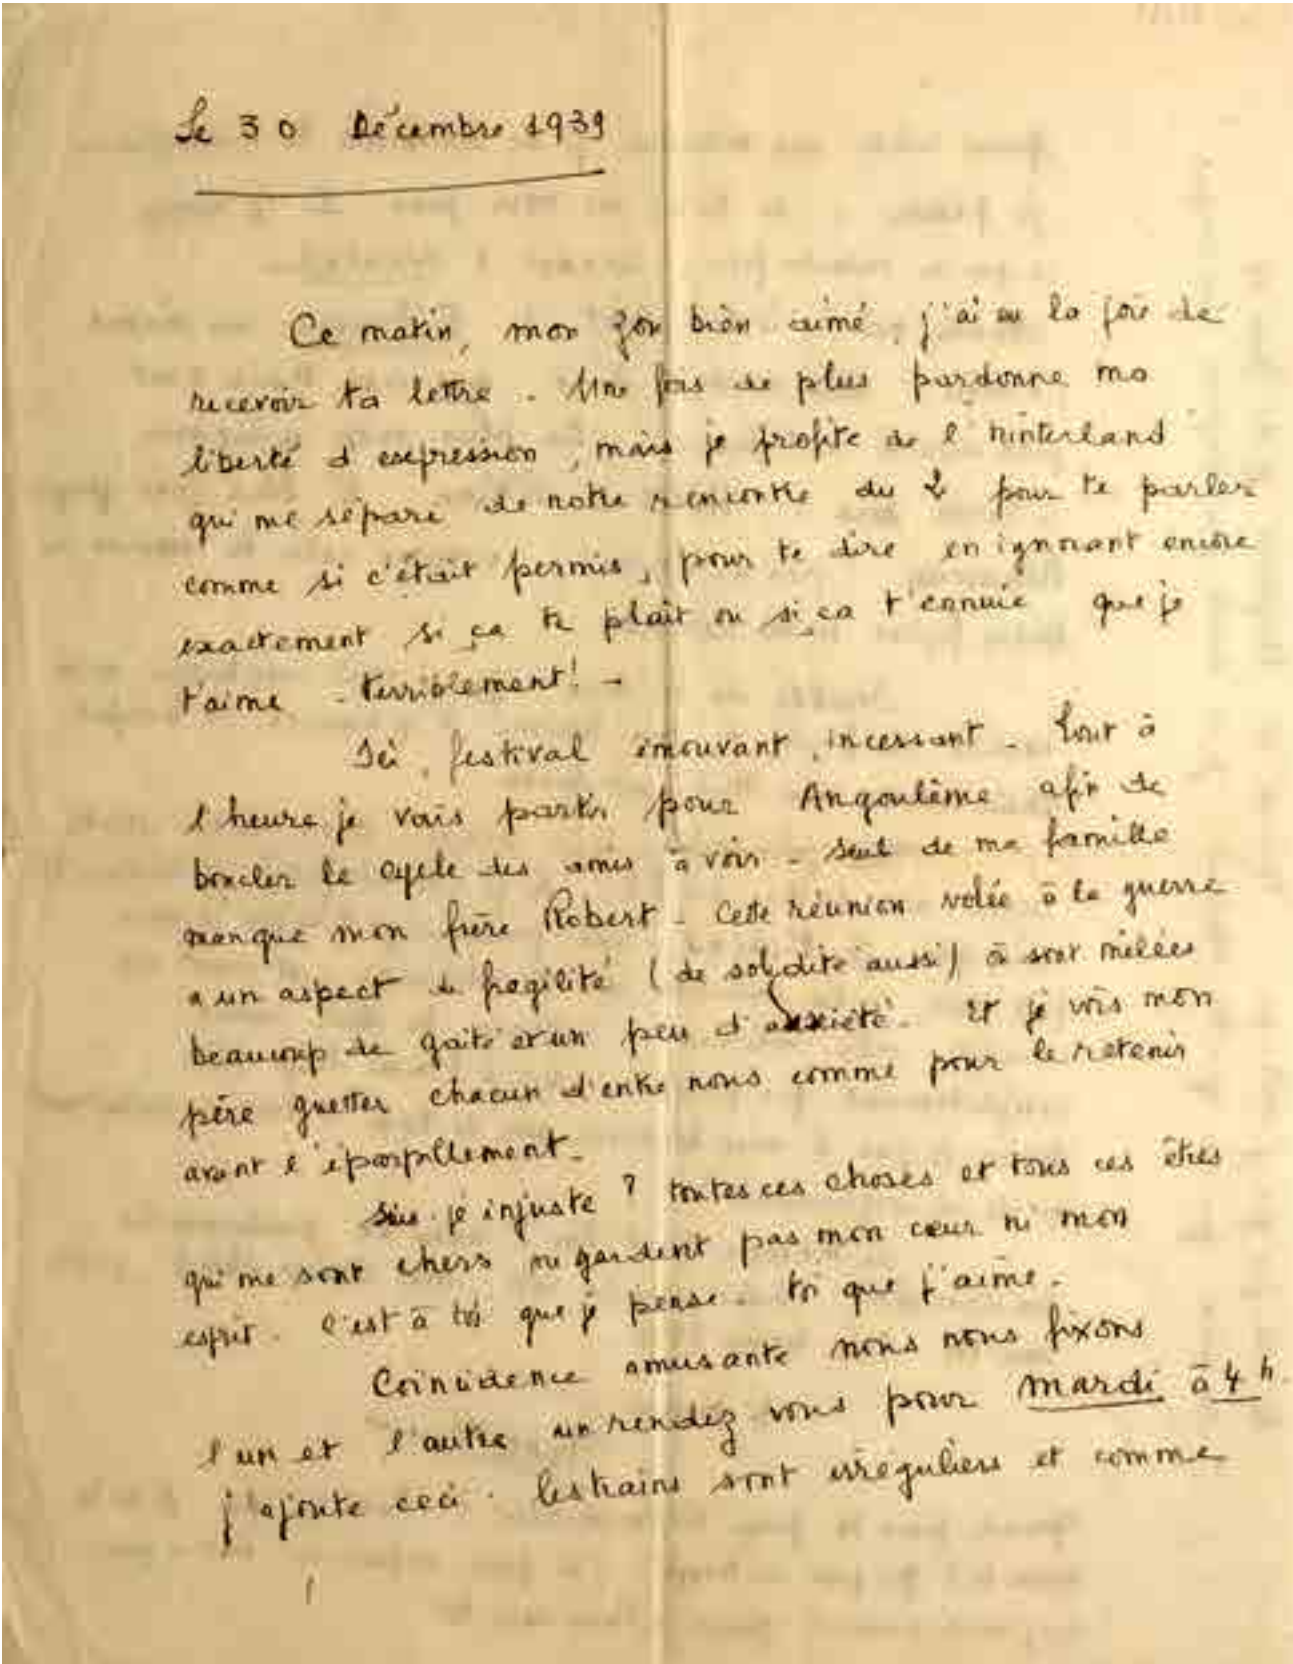 Le 30 Décembre 1939
Ce matin, mon Zou bien aimé, j'ai eu la joie de
recevoir ta lettre. Une fois de plus pardonne ma
liberté d'expression, mais je profite de l'hinterland
qui me sépare de notre rencontre du 2 pour te parler
comme si c'était permis, pour te dire en ignorant encore
exactement si ça te plaît ou si ça t'ennuie que je
t'aime - terriblement! -
Ici, festival émouvant, incessant. Tout à
l'heure je vais partir pour Angoulême afin de
boucler le cycle des amis à voir - seul de ma famille
manque mon frère Robert - Cette réunion volée à la guerre
a un aspect de fragilité (de solidité aussi) où sont mêlées
beaucoup de gaîté et un peu d'anxiété. Et je vois mon
père guetter chacun d'entre nous comme pour le retenir
avant l'éparpillement.
Suis-je injuste ? toutes ces choses et tous ces êtres
qui me sont chers ne gardent pas mon cœur ni mon
esprit. C'est à toi que je pense - toi que j'aime.
Coïncidence amusante nous nous fixons
l'un et l'autre un rendez vous pour mardi à 4 h
j'ajoute ceci. les trains sont irréguliers et comme